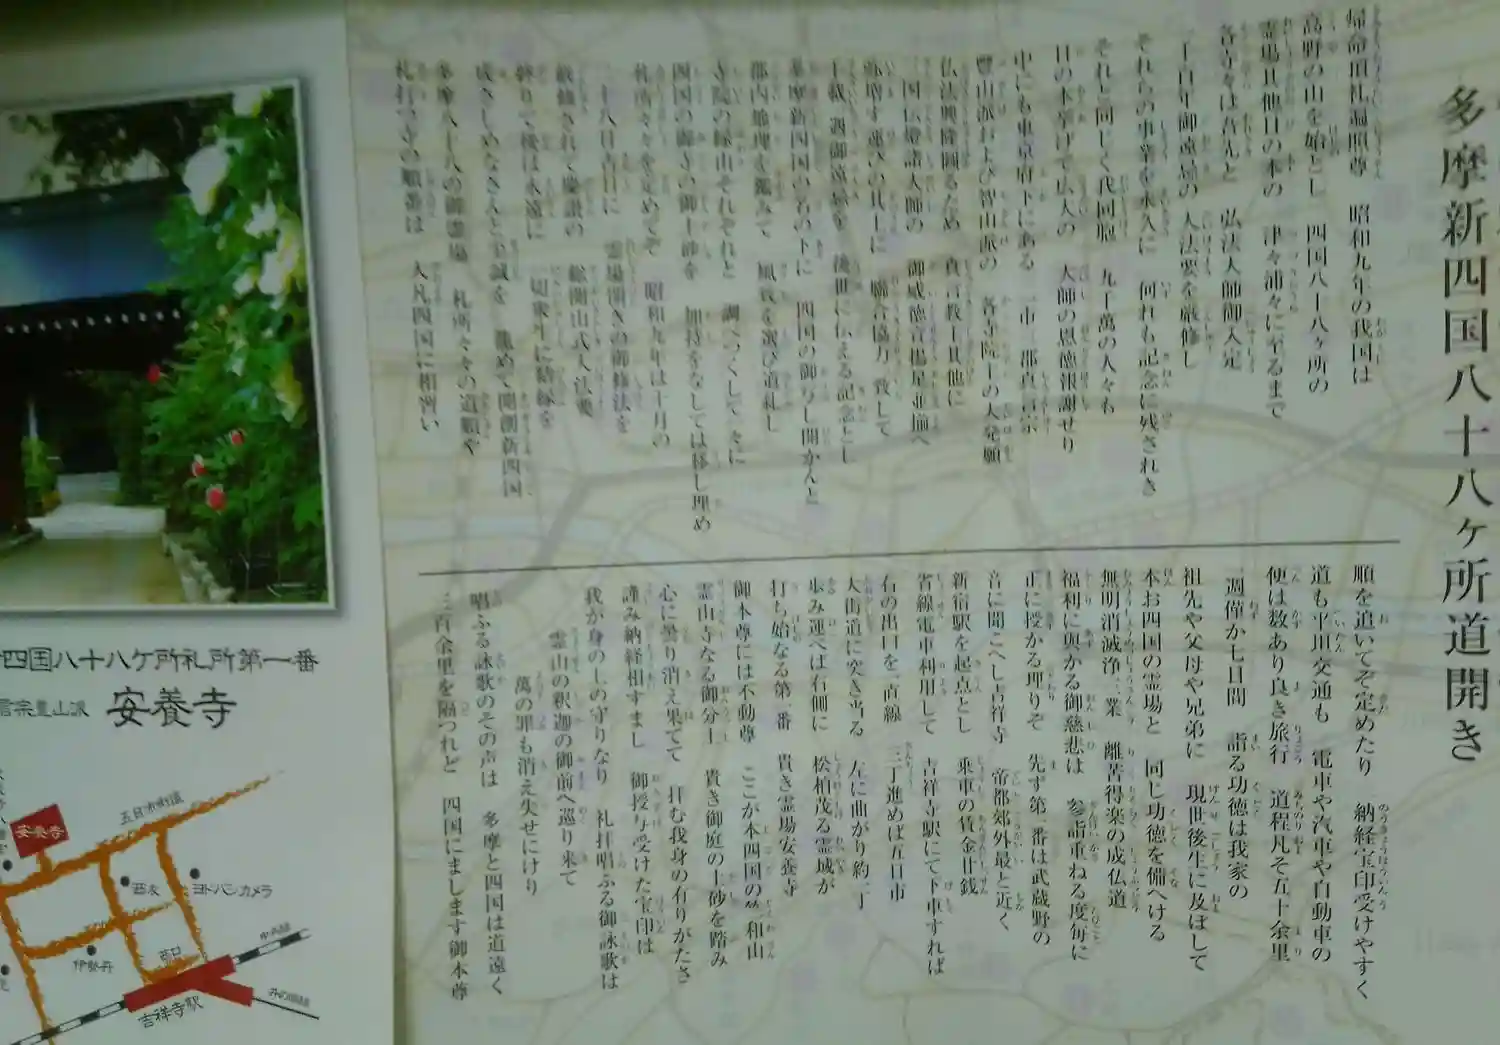 多摩新四国八十八ヶ所道開き
帰命頂礼遍照尊 昭和九年の我国は
高野の山を始とし 四国八十八ヶ所の
霊場其他日の本の 津々浦々に至るまで
各寺々は挙んと 弘法大師御入定
一千百年御遠忌の 大法要を厳修し
それらの事業を永久に 何れも記念に残されき
それと同じく我同胞 九千萬の人々も
日の本挙げて広大の 大師の恩徳報謝せり
中にも東京府下にある 一市一郡真言宗
豊山派および智山派の 各寺院主の大発願
仏法興隆図るため 真言教主其他に
三国伝燈諸大師の 御威徳宣揚星並揃へ
弥増す運びの其上に 聯合協力一致して
千載一遇御遠忌を 後世に伝える記念とし
多摩新四国の名の下に 四国の御写し開かんと
郡内地理を鑑みて 風致を選び道礼し
寺院の縁由それぞれと 調べつくして一々に
四国の御寺の御土砂を 加持をなしては移し埋め
札所々々を定めてぞ 昭和九年は十月の
二十八日吉日に 霊場開きの御修法を
厳修されて慶讃の 総開山式大法要
終りて後は永遠に 一切衆生に結縁を
成さしめなさんと至誠を 籠めて開創新四国
多摩八十八の御霊場 札所々々の道順や
札打つ寺の順番は 大凡四国に相習い
順を追いてぞ定めたり 納経宝印受けやすく
道も平坦交通も 電車や汽車や自動車の
便は数あり良き旅行 道程凡そ五十余里
一週僅か七日間 詣る功徳は我家の
祖先や父母や兄弟に 現世後生に及ぼして
本お四国の霊場と 同じ功徳を備へける
無明消滅浄三業 離苦得楽の成仏道
福利に與かる御慈悲は 参詣重ねる度毎に
正に授かる理りぞ 先ず第一番は武蔵野の
音に聞こへし吉祥寺 帝都郊外最と近く
新宿駅を起点とし 乗車の賃金廿銭
省線電車利用して 吉祥寺駅にて下車すれば
右の出口を一直線 三丁進めば五日市
大街道に突き当る 左に曲がり約一丁
歩み運べば右側に 松柏茂る霊域が
打ち始なる第一番 貴き霊場安養寺
御本尊には不動尊 ここが本四国の竺和山
霊山寺なる御分土 貴き御庭の土砂を踏み
心に曇り消え果てて 拝む我身の有りがたさ
謹み納経相すまし 御授与受けた宝印は
我が身の上の守りなり 礼拝唱ふる御詠歌は
霊山の釈迦の御前へ巡り来て
萬の罪も消え失せにけり
唱ふる詠歌のその声は 多摩と四国は道遠く
三百余里を隔つれど 四国にまします御本尊
四国八十八ケ所札所第一番
言宗豊山派 安養寺
安養寺
五日市街道
西友
ヨドバシカメラ
伊勢丹
中央線
吉祥寺駅
井の頭線